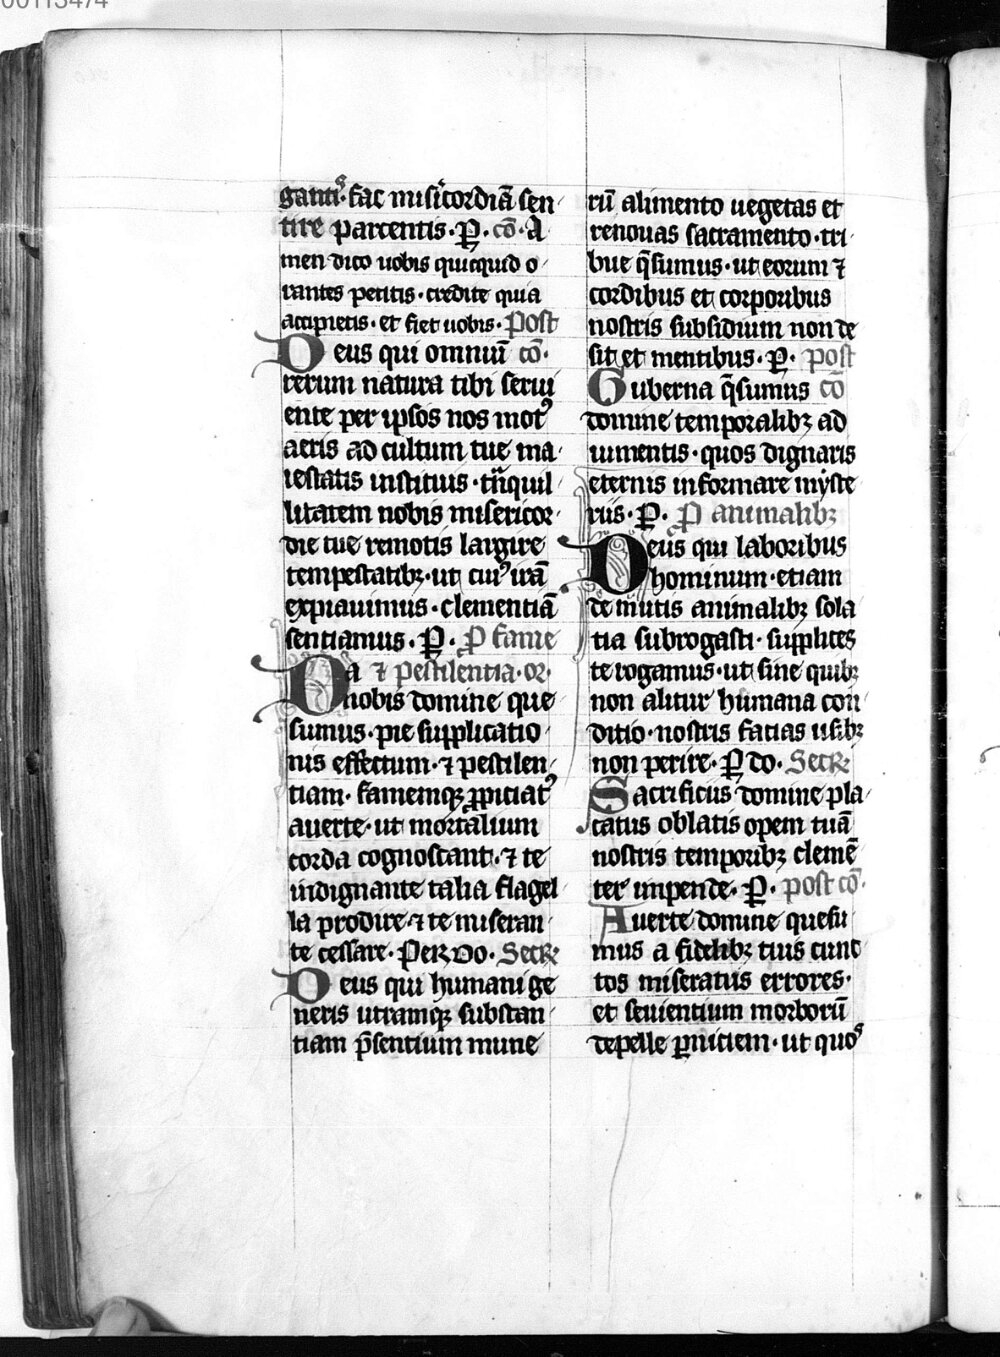 00113474
ganti᷒· fac mis̅icordiā sen
tire parcentis· P̱· co̅· A
men dico uobis quicquid o
rantes petitis· credite quia
accipietis· et fiet uobis· Post
Deus qui omniū co̅·
rerum natura tibi serui
ente per ipsos nos mot᷒
aeris ad cultum tue ma
iestatis instituis· tn̅quil
litatem nobis misericor
die tue remotis largire
tempestatibꝫ· ut cui᷒ irā
expauimus· clementiā
sentiamus. P̱. P fame
Da ⁊ pestilentia· or̅
nobis domine que
sumus· pie supplicatio
nis effectum· ⁊ pestilen
tiam· famemqꝫ ꝓpiciat᷒
auerte· ut mortalium
corda cognoscant· ⁊ te
indignante talia flagel
la prodire· ⁊ te miseran
te cessare· Per Do· Secꝝ
Deus qui humani ge
neris utramqꝫ substan
tiam p̄sentium mune
rū alimento uegetas et
renouas sacramento· tri
bue q̄sumus· ut eorum ⁊
cordibus et corporibus
nostris subsidium non de
sit et mentibus· P̱· post
Guberna q̄sumus co̅
domine temporalibꝫ ad
iumentis· quos dignaris
eternis informare myste
riis· P̱· P animalibꝫ
Deus qui laboribus
hominum· etiam
de mutis animalibꝫ sola
tia subrogasti· supplices
te rogamus· ut sine quibꝫ
non alitur humana con
ditio· nostris facias usibꝫ
non perire· P̱ do· Secꝝ
Sacrificiis domine pla
catus oblatis opem tuā
nostris temporibꝫ clemē
ter impende· P̱· post co̅·
Auerte domine quesu
mus a fidelibꝫ tuis cunc
tos miseratus errores·
et seuientium morborū
depelle ꝑniciem· ut quo᷒